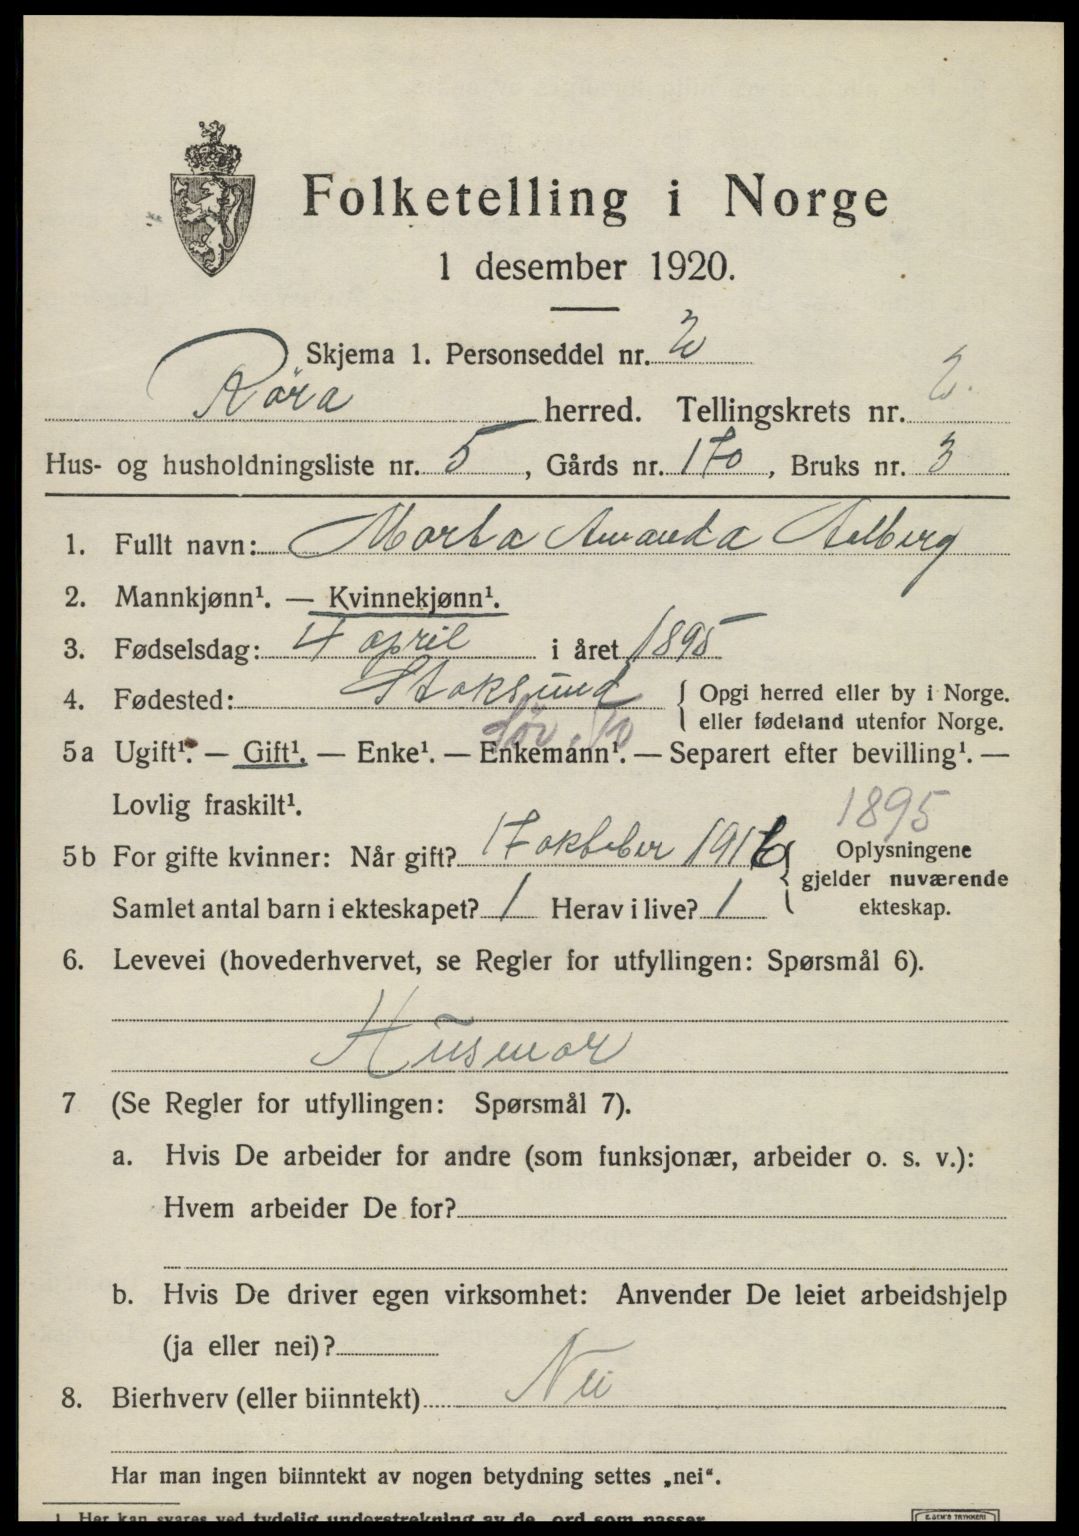 Folketelling i Norge
1 desember 1920.
Skjema 1. Personseddel nr. 2
Röra herred. Tellingskrets nr. 2.
Hus- og husholdningsliste nr. 5, Gårds nr. 170, Bruks nr. 3
1. Fullt navn: Marta Amanda Aalberg
2. Mannkjønn¹. — Kvinnekjønn¹.
3. Fødselsdag: 4 april i året 1895
4. Fødested: Stoksund { Opgi herred eller by i Norge.
eller fødeland utenfor Norge.
5a Ugift¹. — Gift¹. — Enke¹. — Enkemann¹. — Separert efter bevilling¹. —
Lovlig fraskilt¹.
1895
5b For gifte kvinner: Når gift? 17 oktober 1916 { Oplysningene
gjelder nuværende
Samlet antal barn i ekteskapet? 1 Herav i live? 1 ekteskap.
6. Levevei (hovederhvervet, se Regler for utfyllingen: Spørsmål 6).
Husmor
7 (Se Regler for utfyllingen: Spørsmål 7).
a. Hvis De arbeider for andre (som funksjonær, arbeider o. s. v.):
Hvem arbeider De for?
b. Hvis De driver egen virksomhet: Anvender De leiet arbeidshjelp
(ja eller nei)?
8. Bierhverv (eller biinntekt) Nei
Har man ingen biinntekt av nogen betydning settes „nei“.
1. Her kan svares ved tydelig understrekning av de ord som passer.